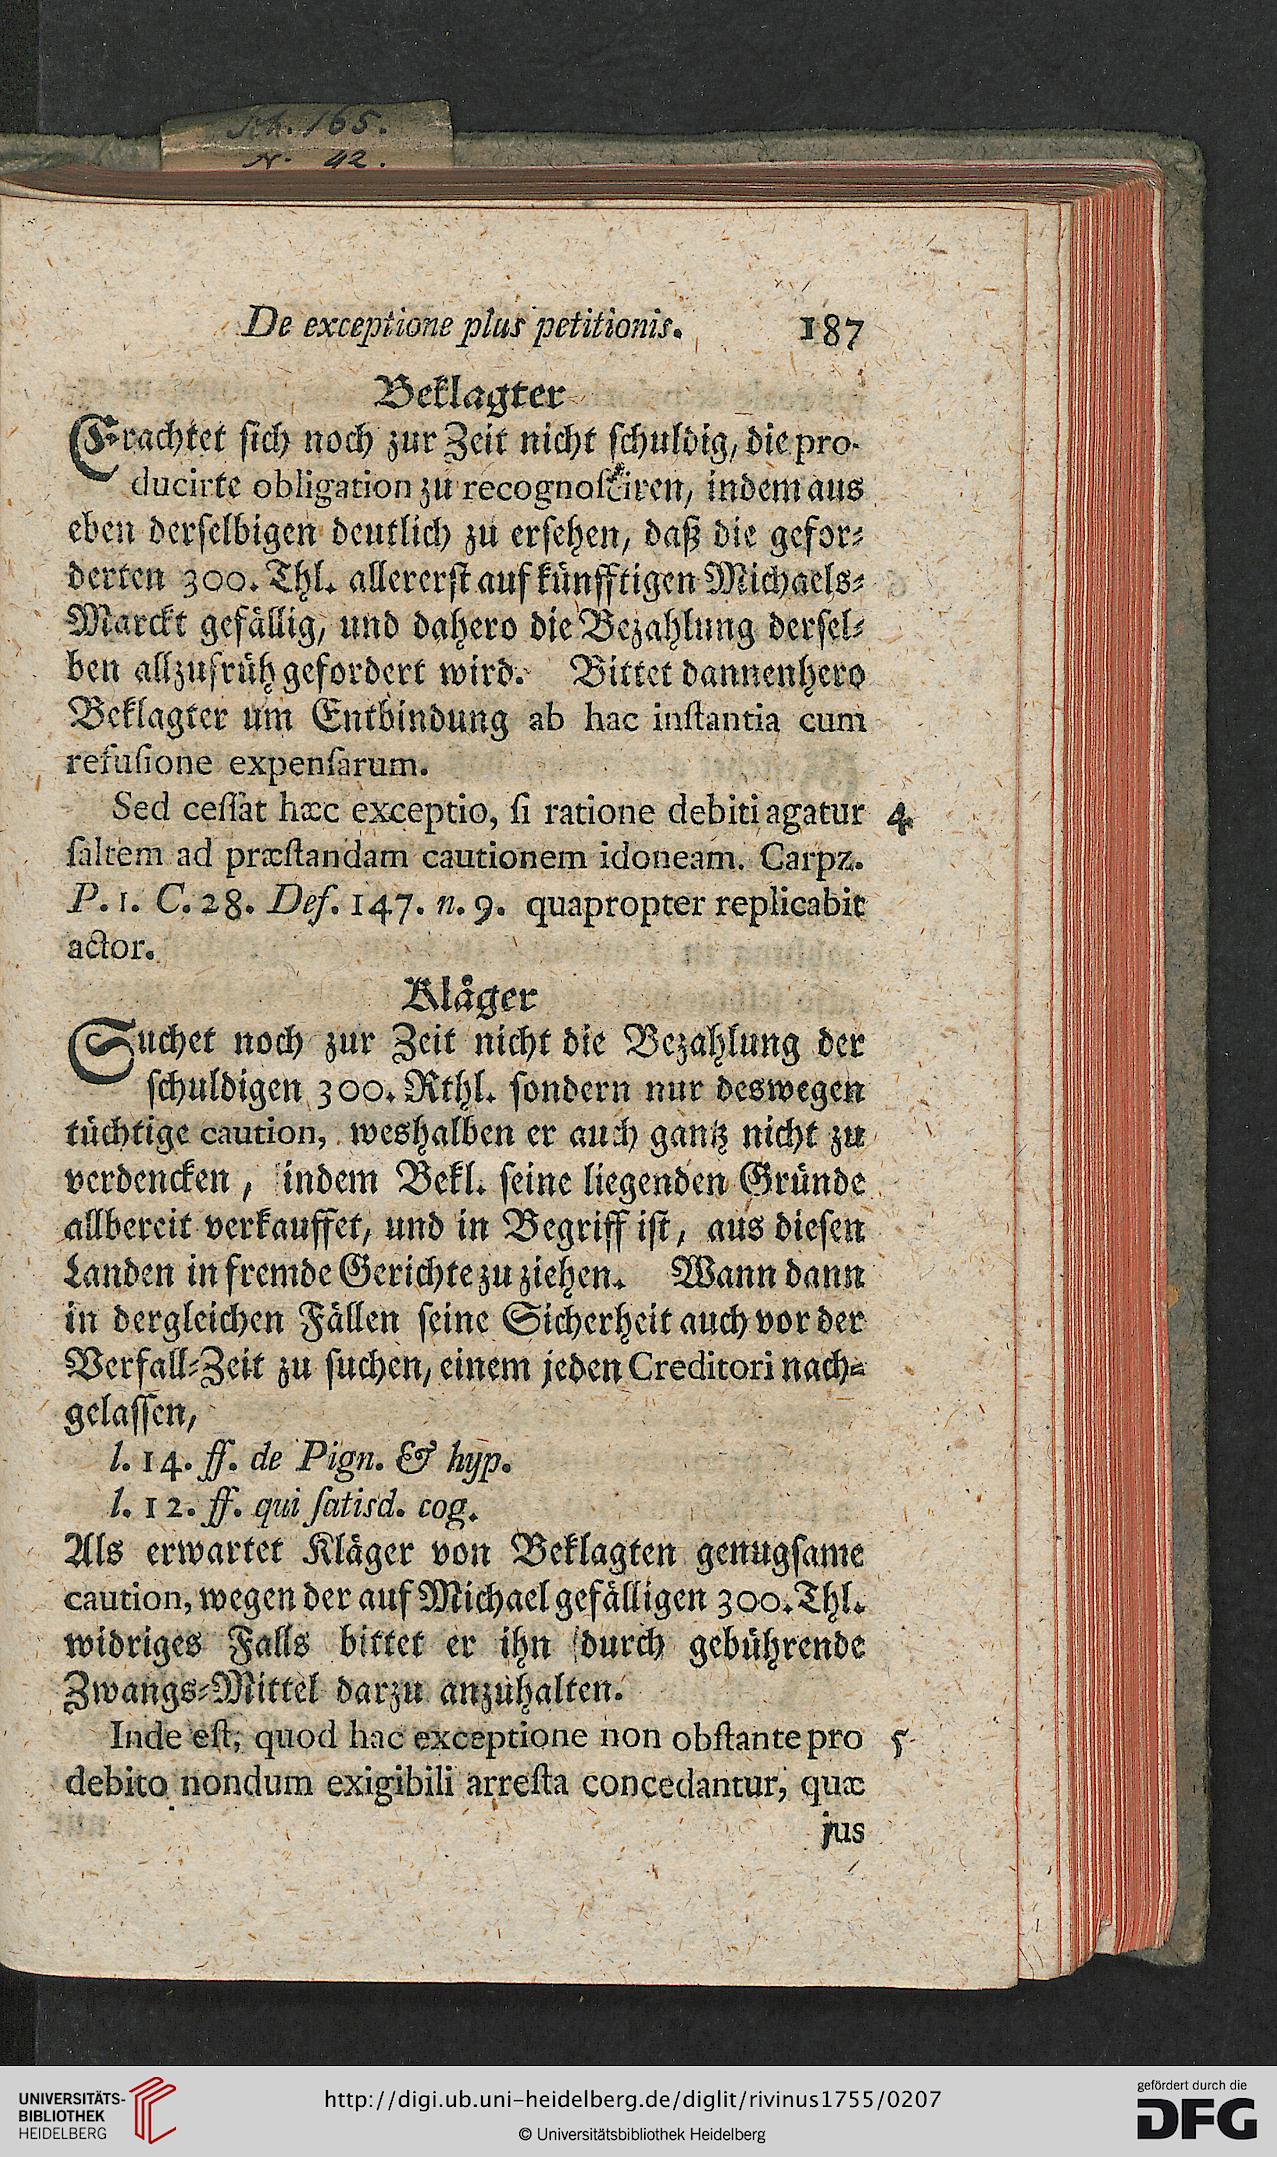 Sch. 165.
N. 42.
De exceptione plus petitionis. 187
Beklagter
Erachtet ſich noch zur Zeit nicht ſchuldig, die pro-
ducirte obligation zu recognoſciren, indem aus
eben derſelbigen deutlich zu erſehen, daß die gefor-
derten 300. Thl. allererſt auf künfftigen Michaels-
Marckt gefällig, und dahero die Bezahlung derſel-
ben allzufrüh gefordert wird. Bittet dannenhero
Beklagter um Entbindung ab hac inſtantia cum
refuſione expenſarum.
Sed ceſſat hæc exceptio, ſi ratione debiti agatur 4
ſaltem ad præſtandam cautionem idoneam. Carpz.
P. 1. C. 28. Def. 147. n. 9. quapropter replicabit
actor.
Kläger
Suchet noch zur Zeit nicht die Bezahlung der
ſchuldigen 300. Rthl. ſondern nur deswegen
tüchtige caution, weshalben er auch gantz nicht zu
verdencken, indem Bekl. ſeine liegenden Gründe
allbereit verkauffet, und in Begriff iſt, aus dieſen
Landen in fremde Gerichte zu ziehen. Wann dann
in dergleichen Fällen ſeine Sicherheit auch vor der
Verfall-Zeit zu ſuchen, einem jeden Creditori nach-
gelaſſen,
l. 14. ff. de Pign. & hyp.
l. 12. ff. qui ſatisd. cog.
Als erwartet Kläger von Beklagten genugſame
caution, wegen der auf Michael gefälligen 300. Thl.
widriges Falls bittet er ihn durch gebührende
Zwangs-Mittel darzu anzuhalten.
Inde eſt, quod hac exceptione non obſtante pro 5
debito nondum exigibili arreſta concedantur, quæ
jus
UNIVERSITÄTS-
BIBLIOTHEK
HEIDELBERG
http://digi.ub.uni-heidelberg.de/diglit/rivinus1755/0207
© Universitätsbibliothek Heidelberg
gefördert durch die
DFG